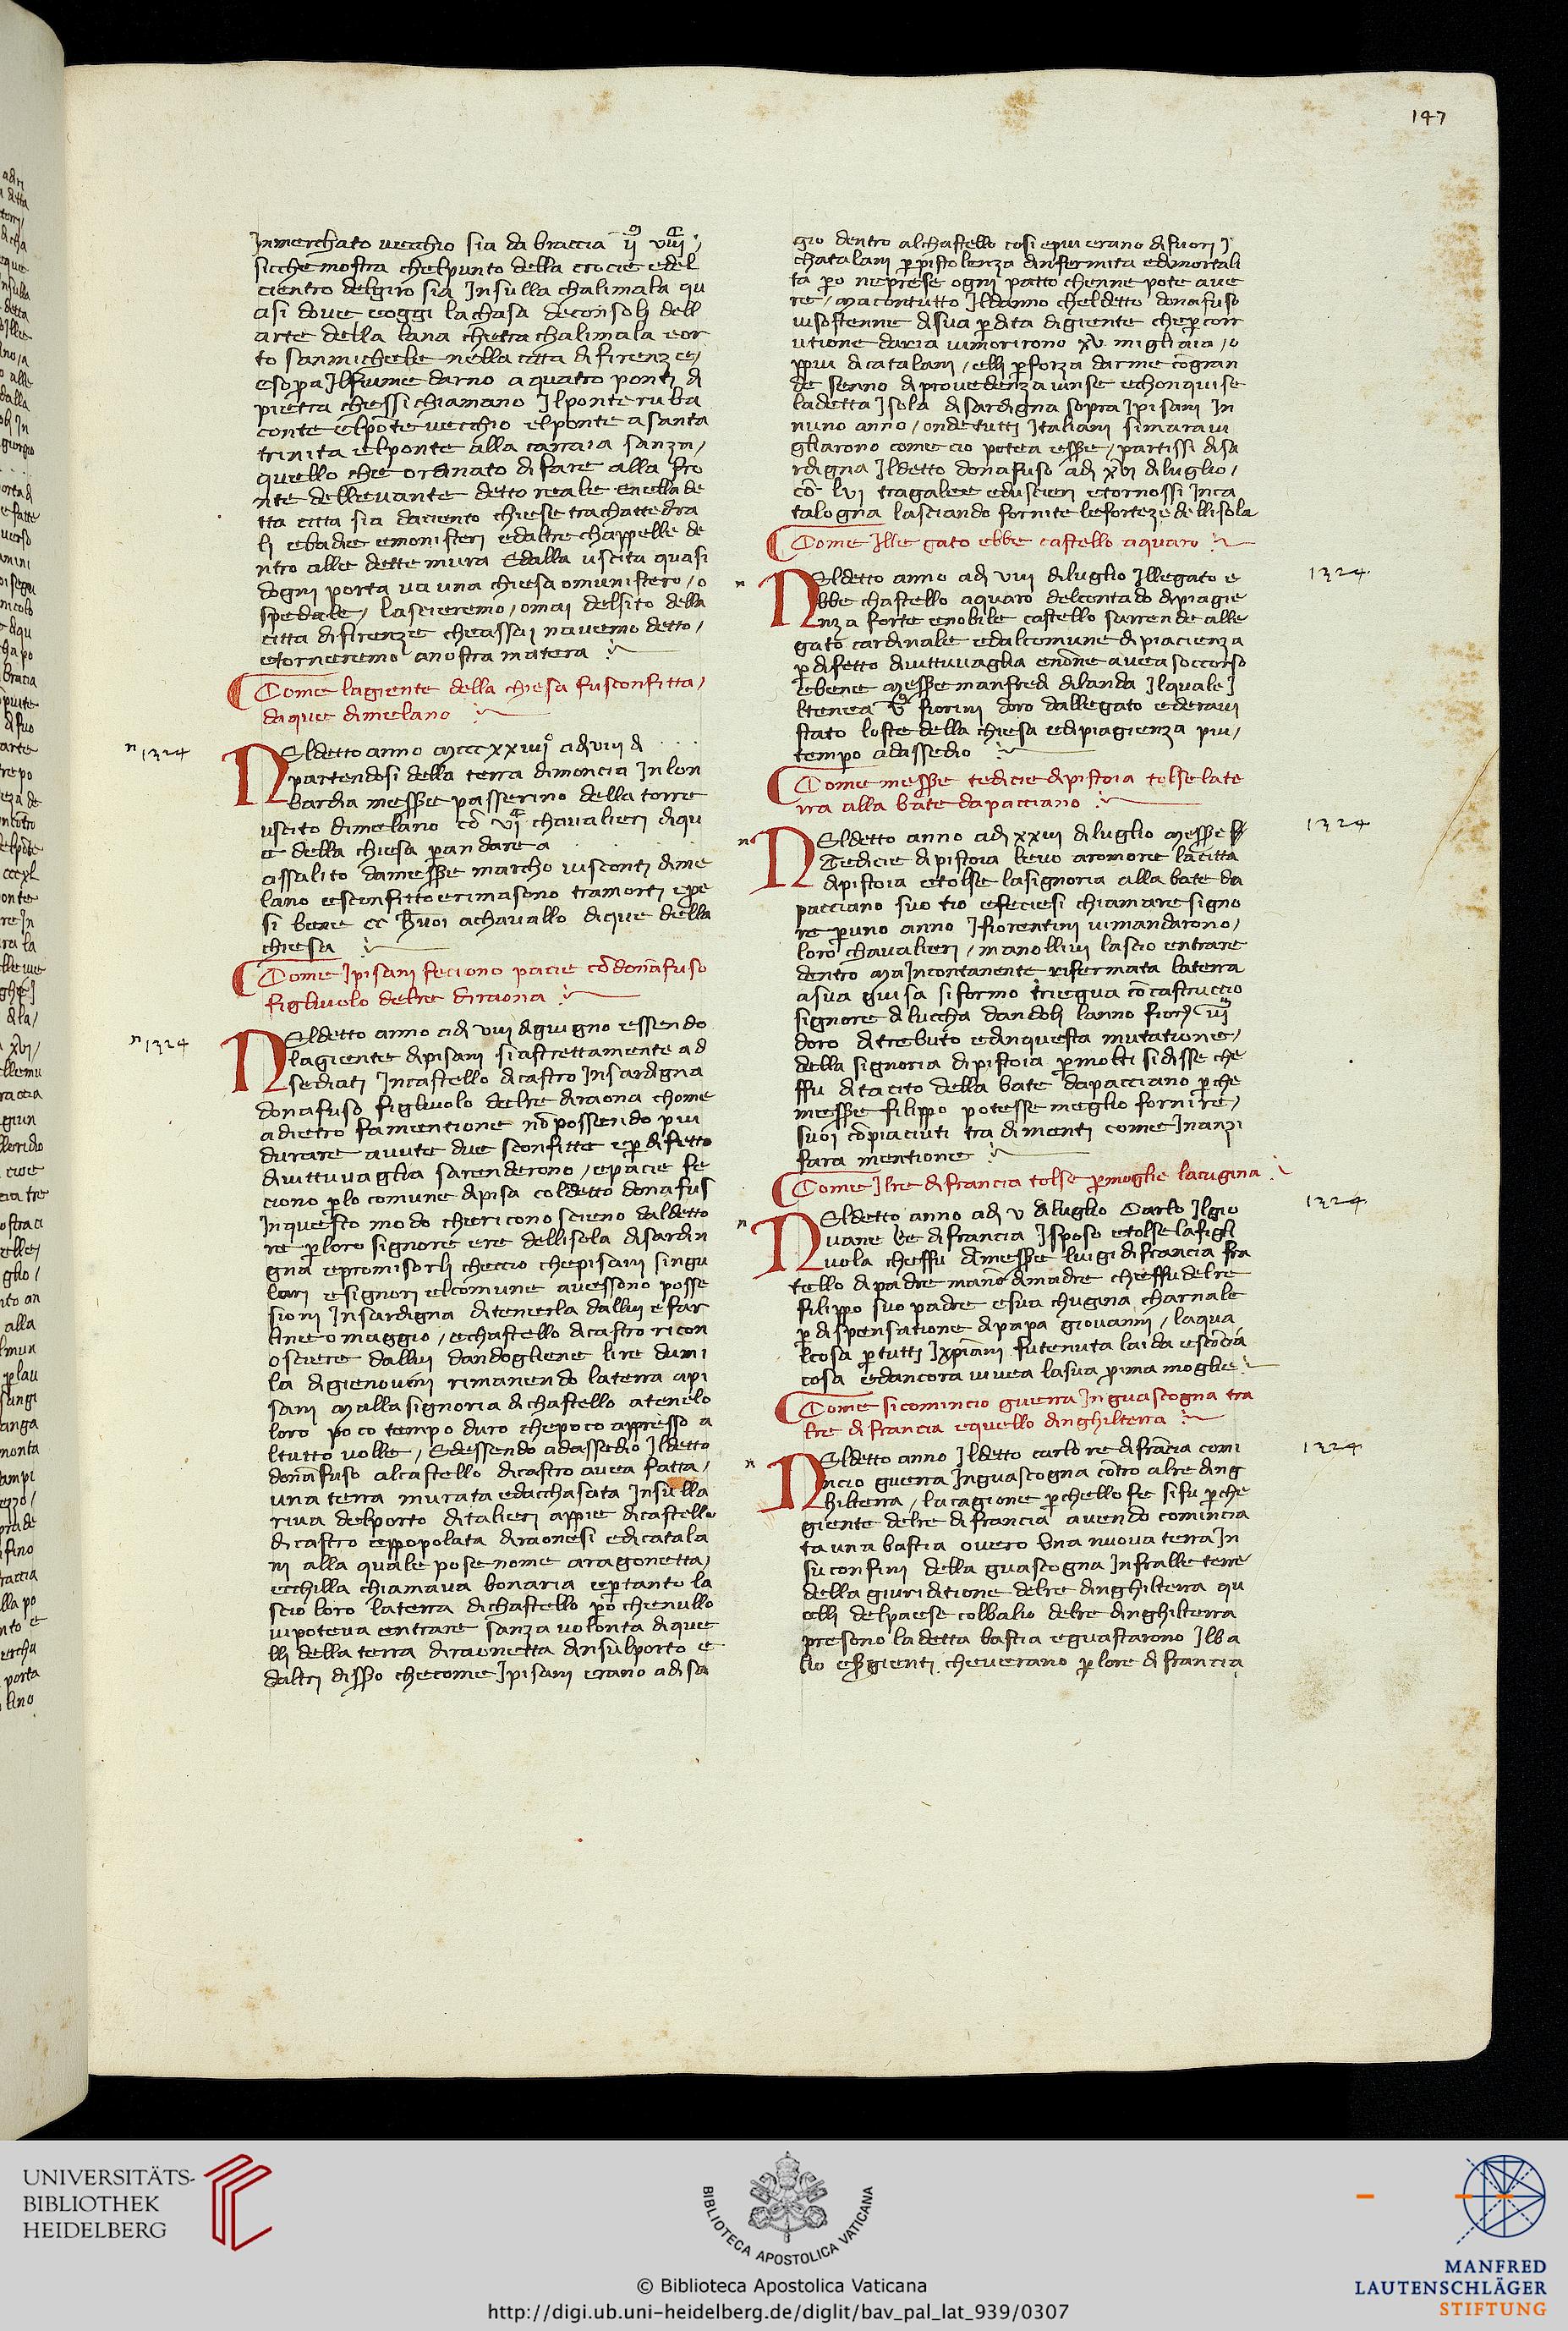 147
Inmerchato vecchio sia da braccia ii viiii
sicche mostra chelpunto della crocie edel
cientro delgiro sia Insulla chalimala qu
asi dove eoggi lachasa deconsoli dell
arte della lana chetra chalimala eor
to sanmichele nella citta di firenze /
esopra Ilfiume darno aquatro ponti di
pietra chessi chiamano Ilponte ruba
conte elpōte vecchio elponte asanta
trinita elponte alla carraia sanza /
quello che ordinato di fare alla fro
nte dellevante detto reale Enella de
tta citta sia daciento chiese trachattedra
li ebadie emonisteri edaltre chappelle de
ntro alle dette mura Edalla uscita quasi
dogni porta va una chiesa omunistero / o
spedale / lascieremo / omai delsito della
citta difirenze cheassai navemo detto /
etorneremo anostra matera
Come lagiente della chiesa fusconfitta /
daque dimelano
n 1324
Neldetto anno mcccxxiiii° adi viii di
partendosi della terra dimoncia Inlon
bardia messere passerino della torre
uscito dimelano cō vi chavalieri diqu
e della chiesa perandare a
assalito damessere marcho visconti dime
lano esconfitto erimasono tramorti epre
si bene cc huoi achavallo dique della
chiesa
Come Ipisani feciono pacie cōdonafuso
figlivolo delre diraona
n 1324
Neldetto anno adi viiii digiugno essendo
lagiente dipisani siastrettamente ad
sediati Incastello dicastro Insardigna
donafuso figlivolo delre diraona chome
adietro famentione nōpossendo piu
durare avute due sconfitte eper difetto
divittuvaglia sarenderono / epacie fe
ciono perlo comune dipisa coldetto donafus
Inquesto modo chericonoscieno daldetto
re perloro signore ere dellisola disardin
gna epromisorli checcio chepisani singu
lari esignori elcomune avessono posse
sioni Insardigna ditenerla dallui efar
line omaggio / echastello dicastro ricon
osciere dallui dandogliene lire dumi
la digienovini rimanendo laterra api
sani malla signoria dichastello atenelo
loro poco tempo duro chepoco appresso a
ltutto volle / Edessendo adassedio Ildetto
donafuso alcastello dicastro avea fatta /
una terra murata edacchasata Insulla
riva delporto ditalieri appie dicastello
dicastro eppopolata diraonesi edicatala
ni alla quale pose nome aragonetta /
ecchilla chiamava bonaria epertanto la
scio loro laterra dichastello perō chenullo
vipoteva entrare sanza volonta dique
lli della terra diraonetta dinsulporto e
daltri disso checome Ipisani erano adisa
gio dentro alchastello cosi epiu erano difuori I
chatalani per pistolenza dinfermita edimortali
ta pero neprese ogni patto chenne pote ave
re / macontutto Ildanno cheldetto donafuso
visostenne disua perdita digiente chepercorr
utione daria vimorirono xv migliaia / o
ppiu dicatalani / elli perforza darme cōgran
de senno diprovedenza vinse echonquise
ladetta Isola disardigna sopra Ipisani In
nuno anno / ondetutti Italiani simaravi
gliarono come cio potea essere / partissi disa
rdigna Ildetto donafuso adi xvi diluglio /
cō lvi tragalee eduscieri etornossi Inca
talogna lasciando fornite leforteze dellisola
Come Illegato ebbe castello aquaro
1324
Neldetto anno adi viii diluglio Illegato e
bbe chastello aquaro delcontado dipiagie
nza forte enobile castello sarrende alle
gato cardinale edalcomune dipiacienza
per difetto divittuvaglia enōne avea soccorso
ebene messere manfredi dilanda Ilquale I
ltenea fiorini doro dallegato ederavi
stato loste della chiesa edipiagienza piu /
tempo adassedio
Come messere tedicie dipistoia tolse late
rra alla bate dapacciano
1324
Neldetto anno adi xxiii diluglio messere
Tedicie dipistoia levo aromore lacitta
dipistoia etolse lasignoria alla bate da
pacciano suo tio efeciesi chiamare signo
re peruno anno Ifiorentini vimandarono /
loro chavalieri / manollivi lascio entrare
dentro maIncontanente rifermata laterra
asua guisa siformo triegua cōcastruccio
signore diluccha dandoli lanno fiori iii
doro ditrebuto edinquesta mutatione /
della signoria dipistoia permolti sidisse che
ffu ditacito della bate dapacciano perche
messere filippo potesse meglio fornire /
suoi cōpiaciuti tradimenti come Inanzi
fara mentione
Come Ilre difrancia tolse permoglie lacugina
1324
Neldetto anno adi v diluglio Carlo Ilgio
vane Re difrancia Isposo etolse lafigli
vola cheffu dimessere luigi difrancia fra
tello dipadre manō dimadre cheffu delre
filippo suo padre esua chugina charnale
per dispensatione dipapa giovanni / laqua
lcosa pertutti Ixpiani futenuta laida escōcia
cosa edancora vivea lasua prima moglie
Come sicomincio guerra Inguascogna tra
lre difrancia equello dinghilterra
1324
Neldetto anno Ildetto carlo re difrācia comi
ncio guerra Inguascogna cōtro alre ding
hilterra / lacagione perchello fe sifu perche
giente delre difrancia avendo comincia
ta una bastia overo Una nuova terra In
suconfini della guascogna Infralle terre
della giuriditione delre dinghilterra qu
elli delpaese colbalio delre dinghilterra
presono ladetta bastia eguastarono Ilba
lio elegienti cheverano perlore difrancia
UNIVERSITÄTS-
BIBLIOTHEK
HEIDELBERG
BIBLIOTECA APOSTOLICA VATICANA
© Biblioteca Apostolica Vaticana
http://digi.ub.uni-heidelberg.de/diglit/bav_pal_lat_939/0307
MANFRED
LAUTENSCHLÄGER
STIFTUNG